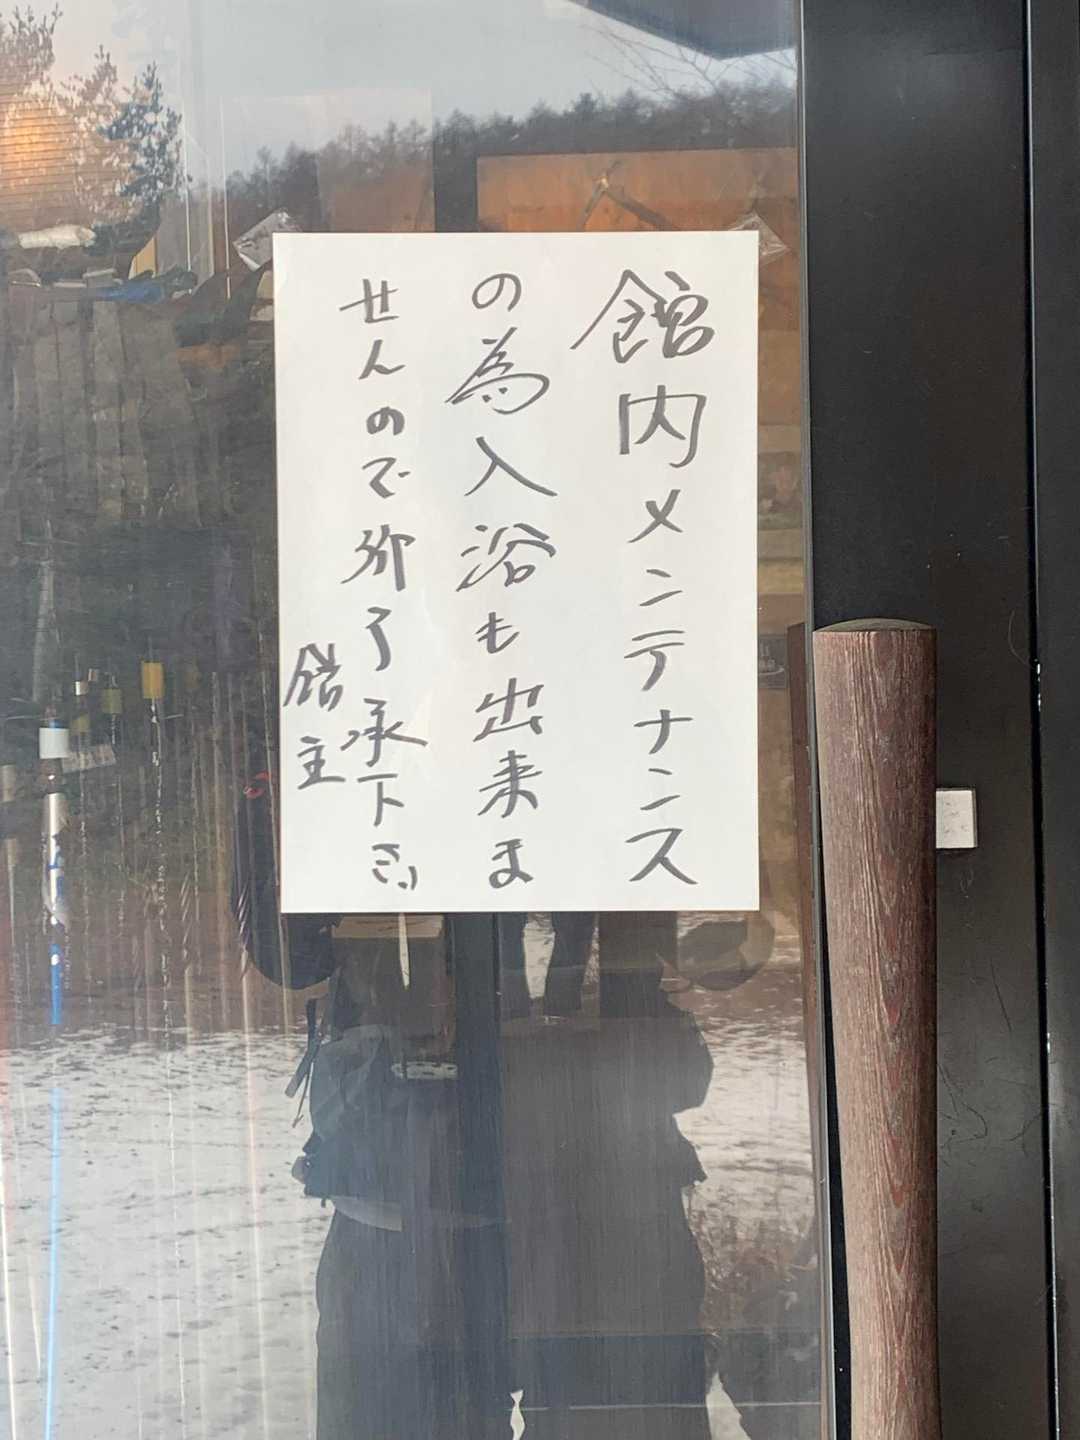 館内メンテナンス
の為入浴も出来ま
せんので御了承下さい
館主